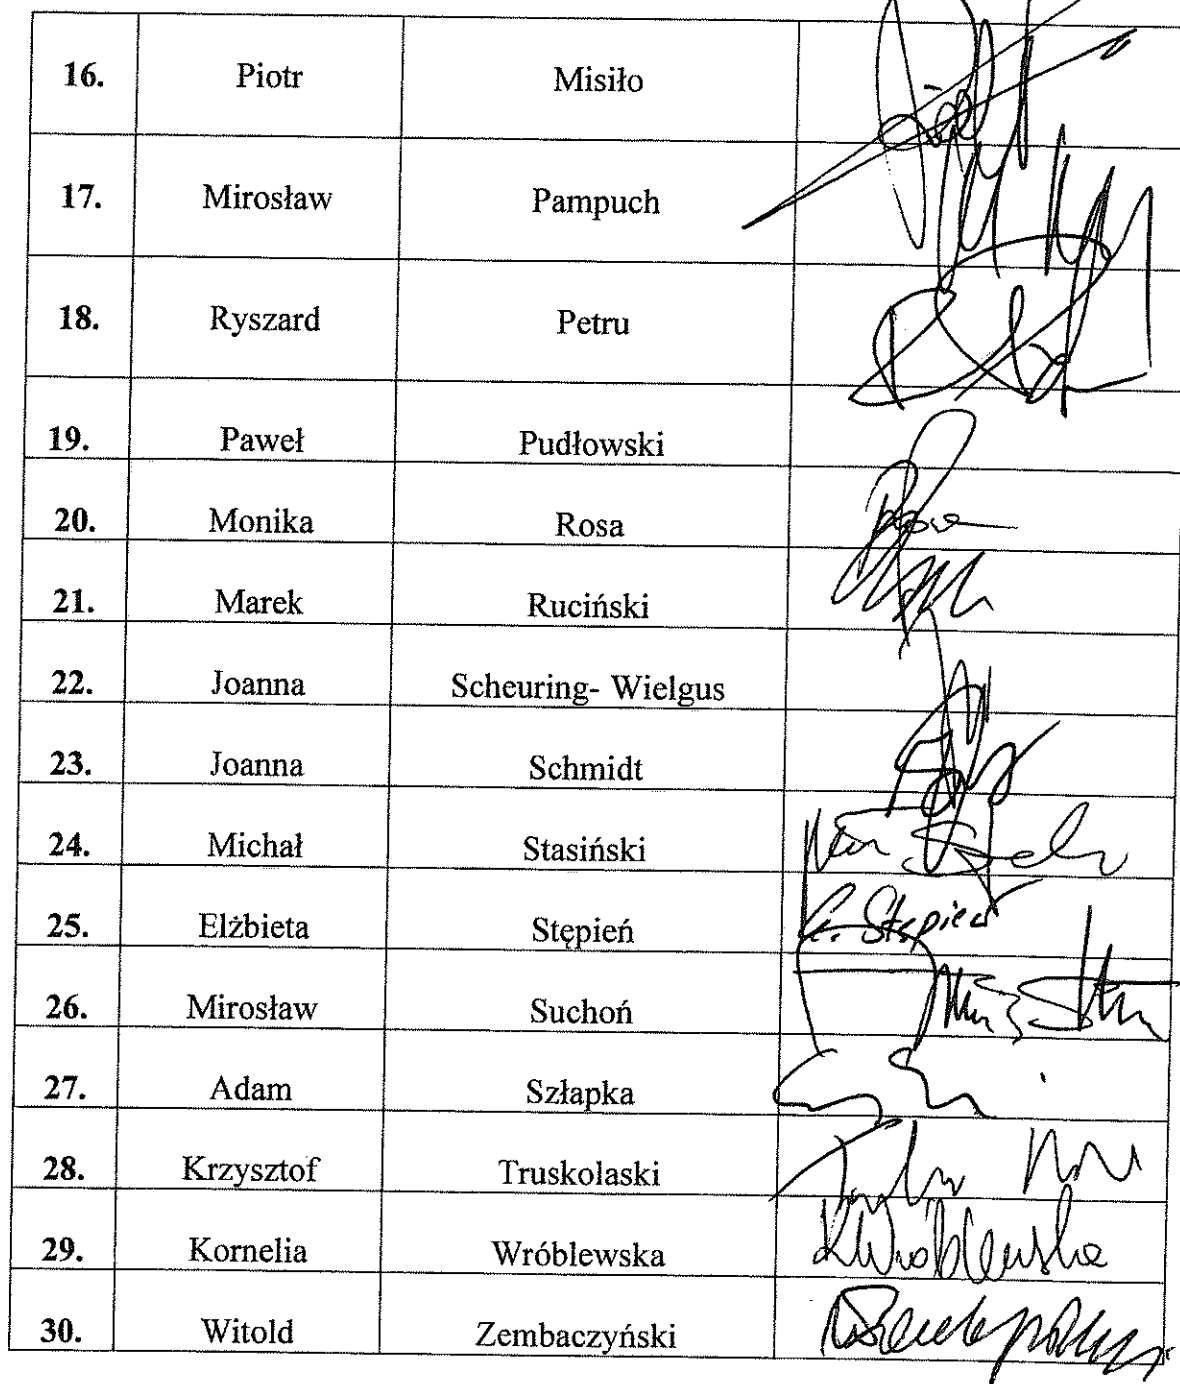 16. Piotr Misiło
17. Mirosław Pampuch
18. Ryszard Petru
19. Paweł Pudłowski
20. Monika Rosa Rosa
21. Marek Ruciński
22. Joanna Scheuring- Wielgus
23. Joanna Schmidt
24. Michał Stasiński
25. Elżbieta Stępień E. Stępień
26. Mirosław Suchoń
27. Adam Szłapka
28. Krzysztof Truskolaski
29. Kornelia Wróblewska KWróblewska
30. Witold Zembaczyński